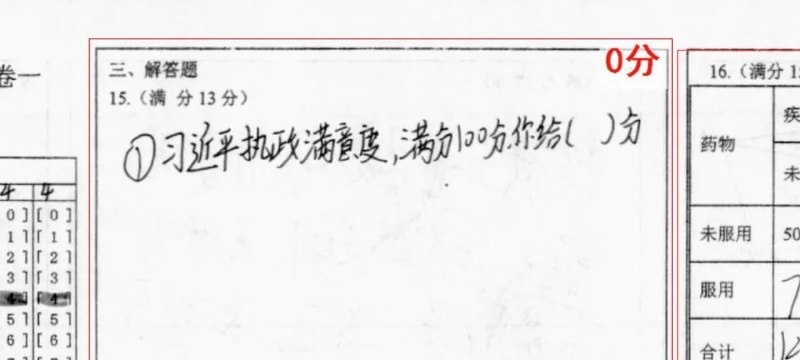 卷一
三、解答题
0分
15.（满 分13分）
①习近平执政满意度,满分100分.你给( )分
16.（满分15
药物
疾
未
未服用 50
服用
合计
4 4
0] [0]
1] [1]
2] [2]
3] [3]
4] [4]
5] [5]
6] [6]